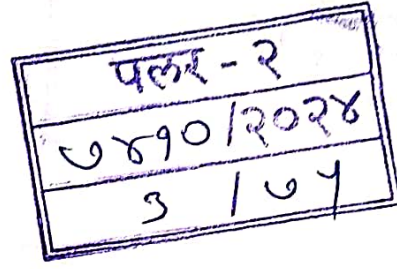 पलर - २
७४१० / २०२४
३ / ७५